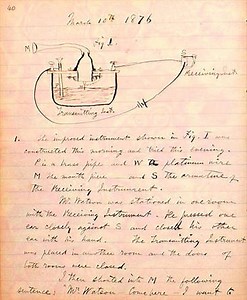 40
March 10th 1876
Fig. 1
M
Receiving Inst.
Transmitting Inst.
1. The improved instrument shown in Fig. I was
constructed this morning and tried this evening.
P is a brass pipe and W the platinum wire
M the mouth piece and S the armature of
the Receiving Instrument.
Mr. Watson was stationed in one room
with the Receiving Instrument. He pressed one
ear closely against S and closed his other
ear with his hand. The Transmitting instrument
was placed in another room and the doors of
both rooms were closed.
I then shouted into M the following
sentence: "Mr. Watson Come here I want to